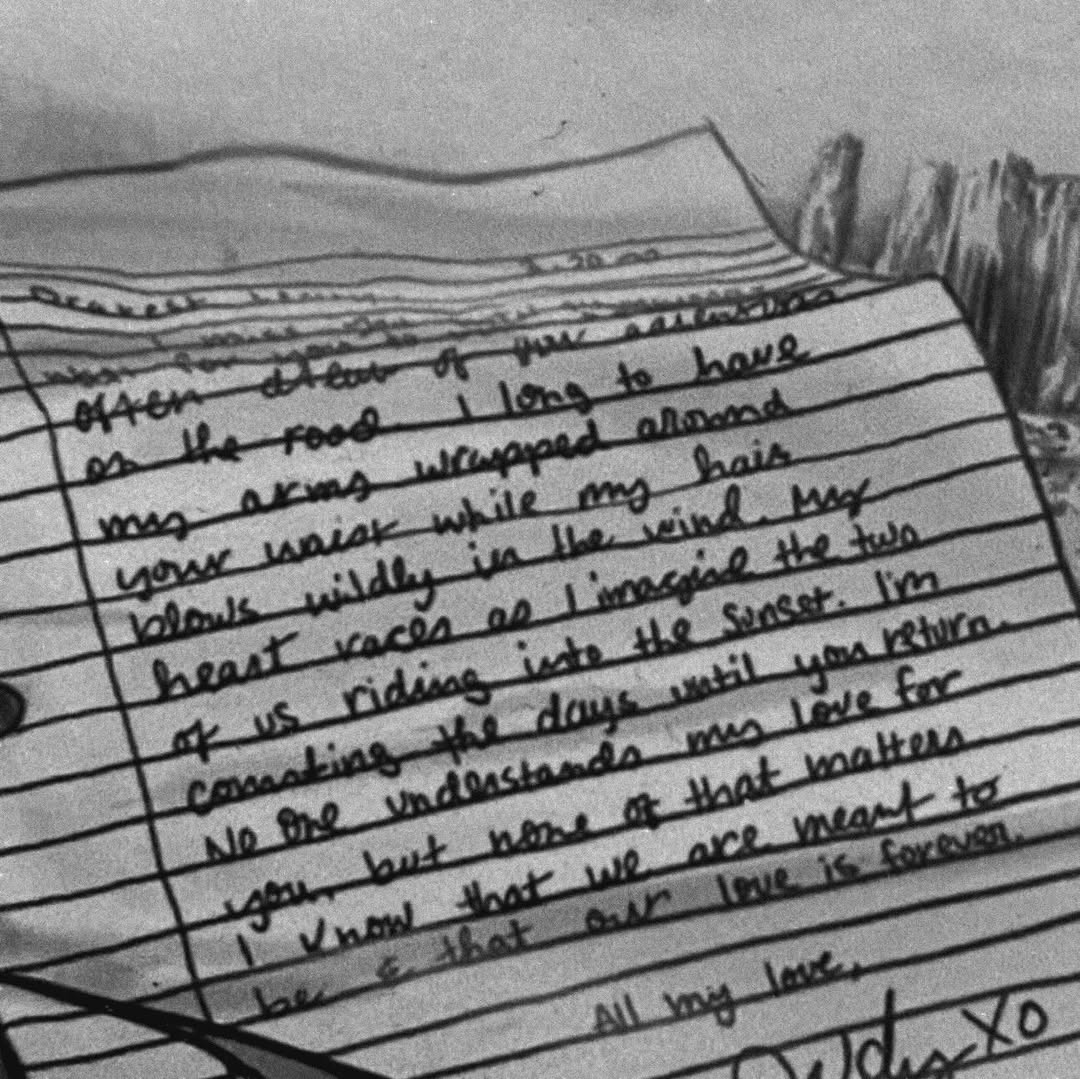 Dearest
I miss you
often
on the road. I long to have
my arms wrapped around
your waist while my hair
blows wildly in the wind. My
heart races as I imagine the two
of us riding into the sunset. I'm
counting the days until you return.
No one understands my love for
you, but none of that matters
I know that we are meant to
be & that our love is forever.
All my love,
XO